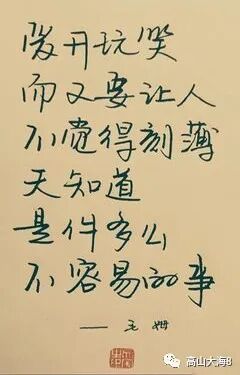 爱开玩笑
而又要让人
不覺得刻薄
天知道
是件多么
不容易的事
— 毛姆
高山大海8